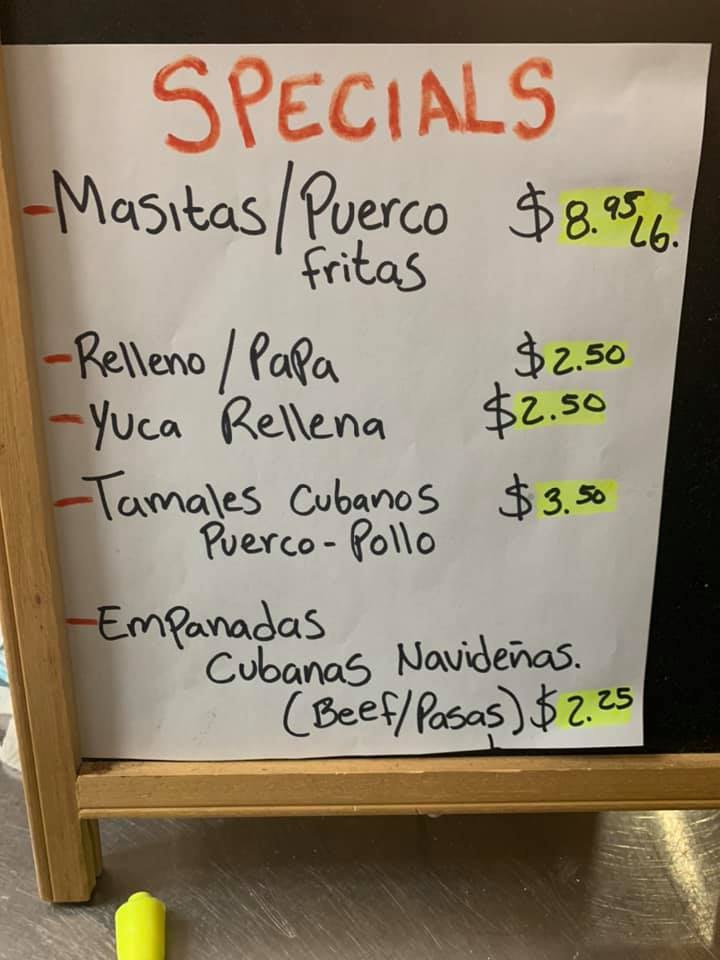 SPECIALS
-Masitas/Puerco $8.95 Lb.
fritas
-Relleno/PaPa $2.50
-Yuca Rellena $2.50
-Tamales Cubanos $3.50
Puerco-Pollo
-EmPanadas
Cubanas Navideñas.
(Beef/Pasas) $2.25